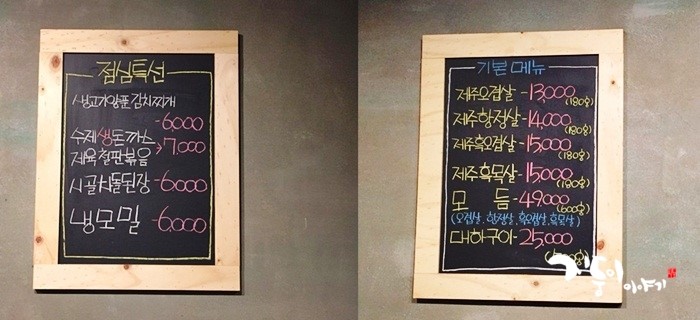 점심특선
생고기양푼김치찌개
-6,000
수제생돈까스
제육철판볶음
>7,000
시골차돌된장
-6,000
냉모밀 -6,000
기본 메뉴
제주오겹살 -13,000
(180g)
제주항정살 -14,000
(180g)
제주흑오겹살 -15,000
(180g)
제주흑목살 -15,000
(180g)
모 듬 -49,000
(600g)
(오겹살, 항정살, 흑오겹살, 흑목살)
대하구이 -25,000
이야기